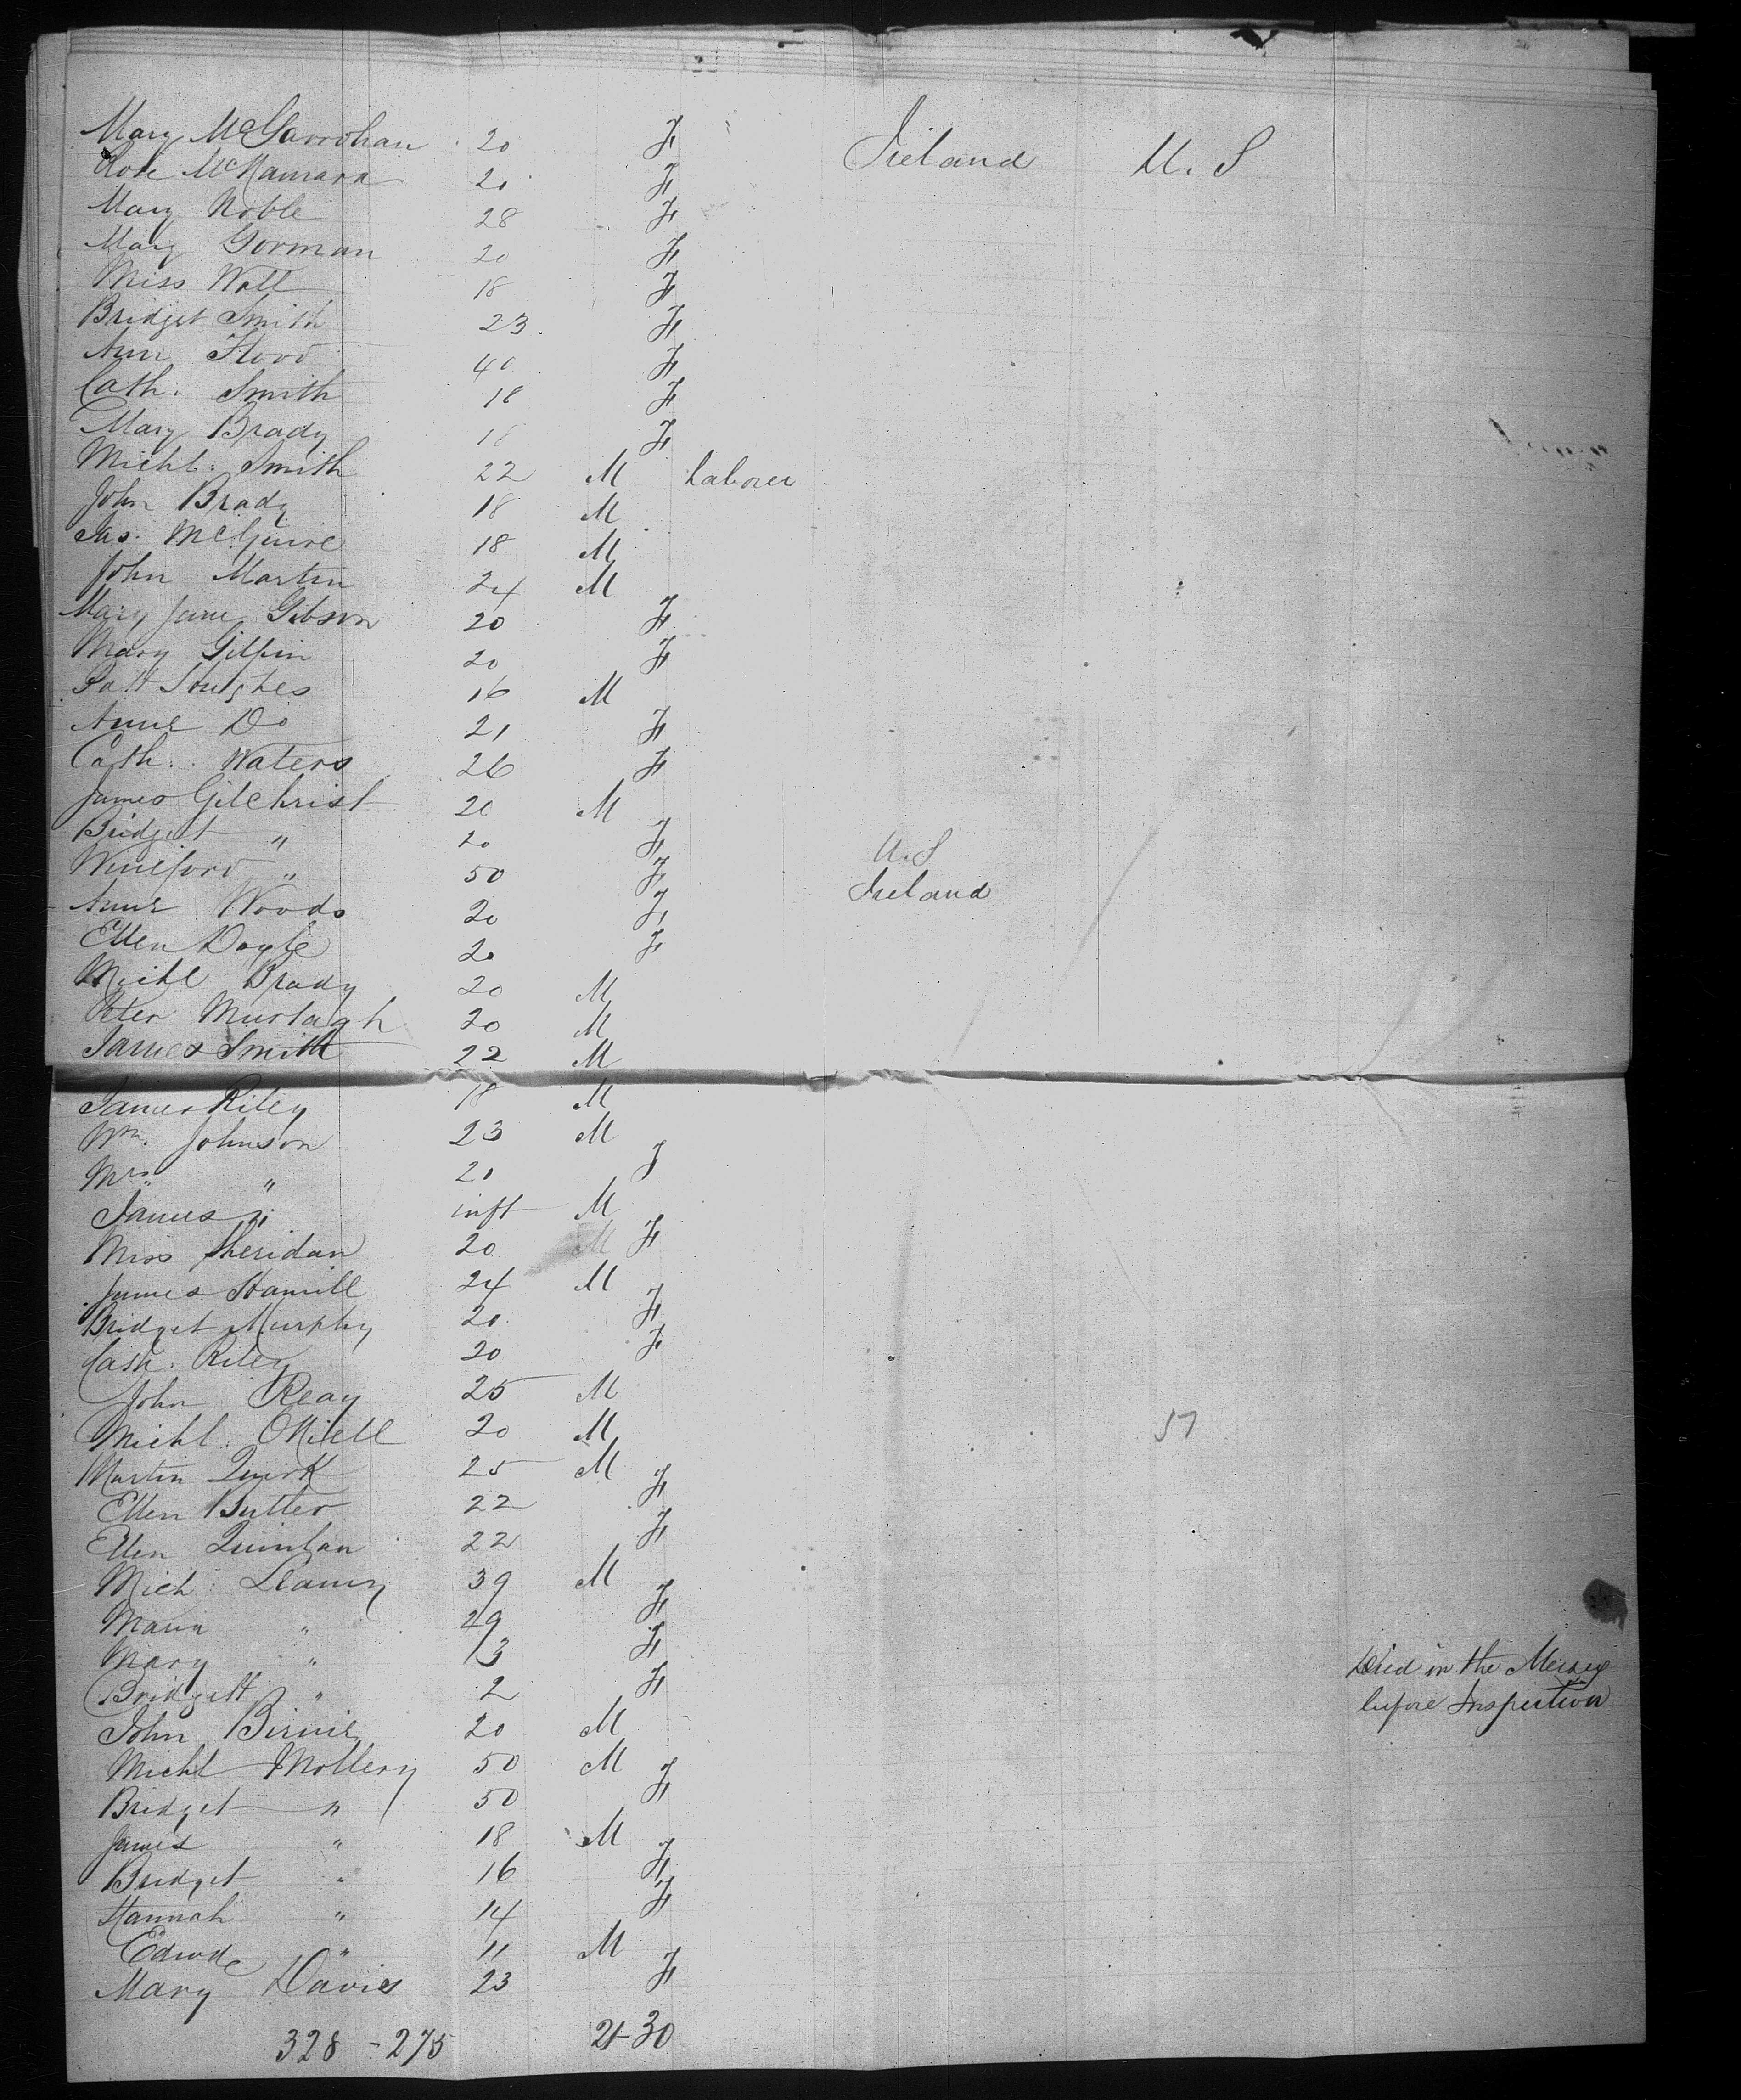 Mary McGarrohan 20 F Ireland U. S
Rose McNamara 20 F
Mary Noble 28 F
Mary Gorman 20 F
Miss Wall 18 F
Bridget Smith 23 F
Ann Flood 40 F
Cath. Smith 18 F
Mary Brady 18 F
Michl. Smith 22 M Laborer
John Brady 18 M
Jas. McGuire 18 M
John Martin 24 M
Mary Jane Gibson 20 F
Mary Gilpin 20 F
Patt Hughes 16 M
Anne Do 21 F
Cath. Waters 26 F
James Gilchrist 20 M
Bridget " 20 F U.S
Wineford " 50 F Ireland
Anne Woods 20 F
Ellen Doyle 20 F
Michl Brady 20 M
Peter Murtagh 20 M
James Smith 22 M
James Riley 18 M
Wm. Johnson 23 M
Mrs. " 20 F
James " inft M
Miss Sheridan 20 F
James Hamill 24 M
Bridget Murphy 20 F
Cath. Riley 20 F
John Reay 25 M
Michl. ONiell 20 M 57
Martin Quirk 25 M
Ellen Butler 22 F
Ellen Quinlan 22 F
Mich. 39 M
" 29 F
Mary " 13 F Died in the Mersey
Bridgett " 2 F before Inspection
John Birnie 20 M
Michl Mollery 50 M
Bridget " 50 F
James " 18 M
Bridget " 16 F
Hannah " 14 F
Edwd " 11 M
Mary Davies 23 F
328 - 275 21-30